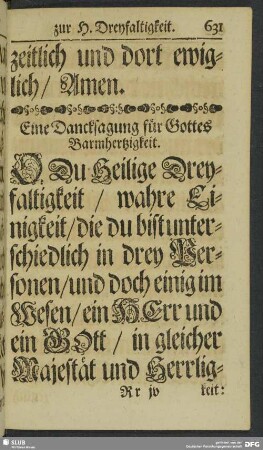 zur H. Dreyfaltigkeit. 631
zeitlich und dort ewig-
lich/ Amen.
Eine Dancksagung für Gottes
Barmhertzigkeit.
O Du Heilige Drey-
faltigkeit / wahre Ei-
nigkeit/die du bist unter-
schiedlich in drey Per-
sonen/und doch einig im
Wesen/ein HErr und
ein GOtt / in gleicher
Majestät und Herrlig-
Rr jv keit:
SLUB
DFG